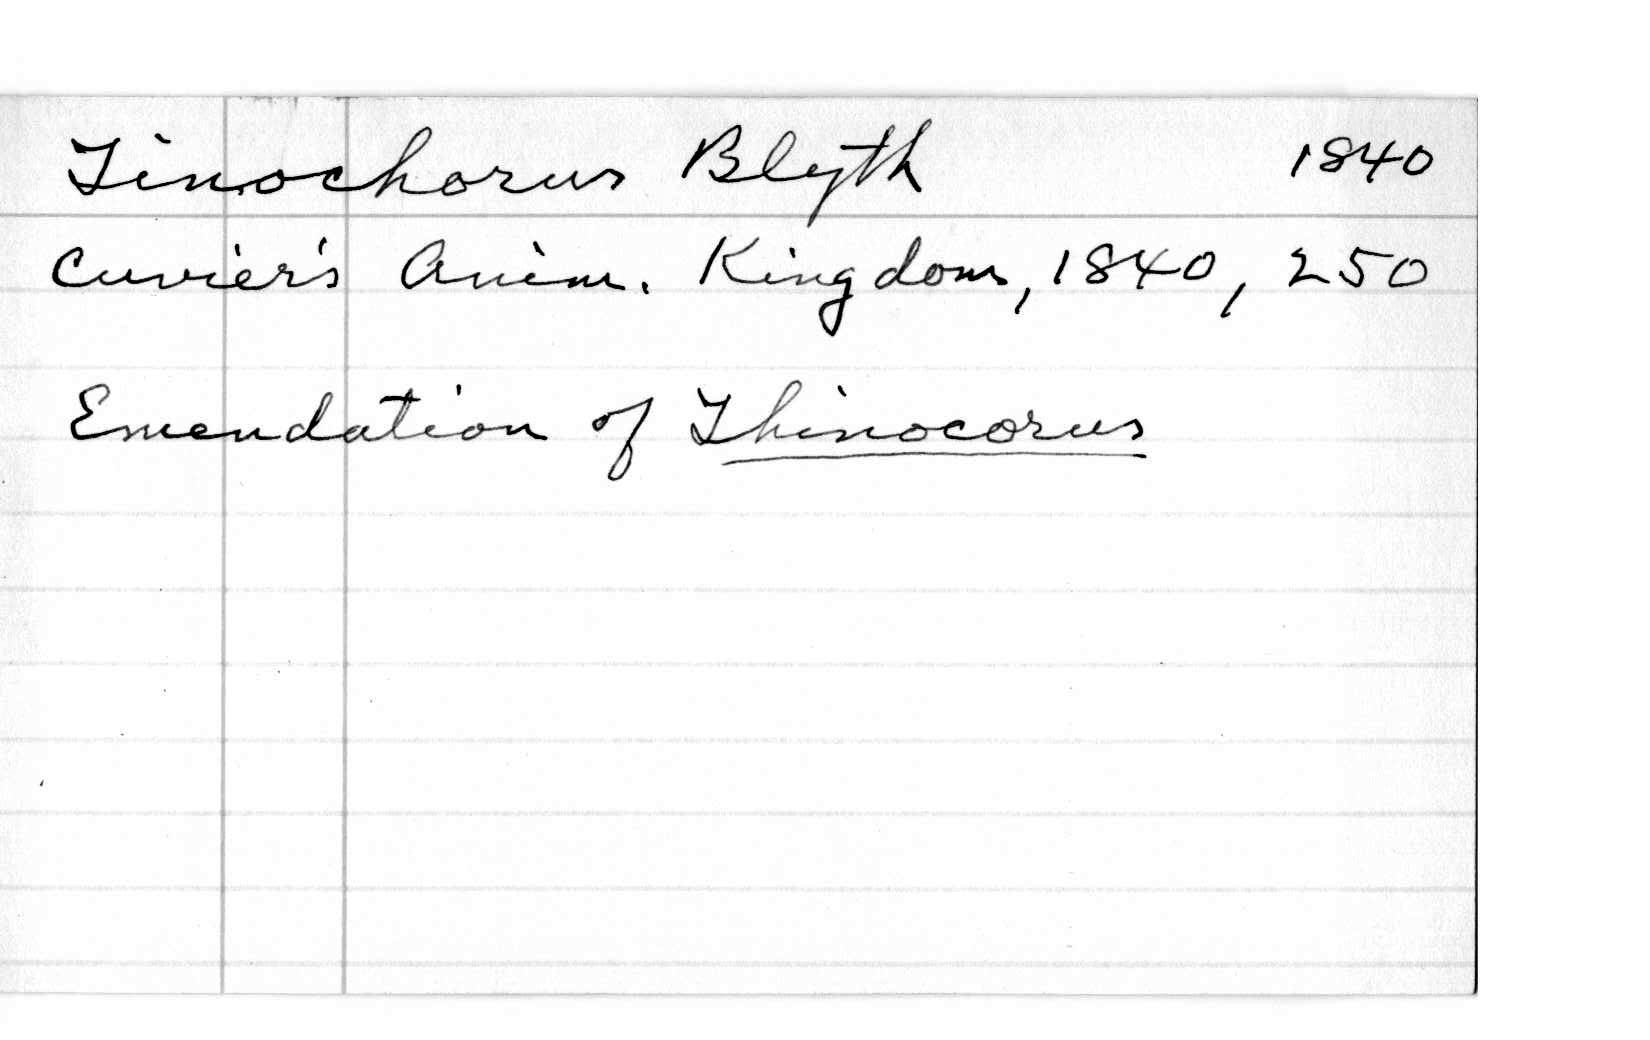 Tinochorus Blyth 1840
Cuvier's Anim. Kingdom, 1840, 250
Emendation of Thinocorus